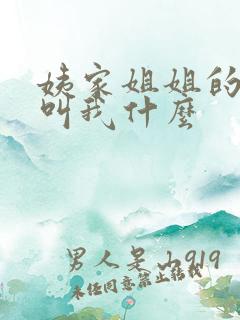 姨家姐姐的
叫我什麼
男人是山919
未经同意禁止转载